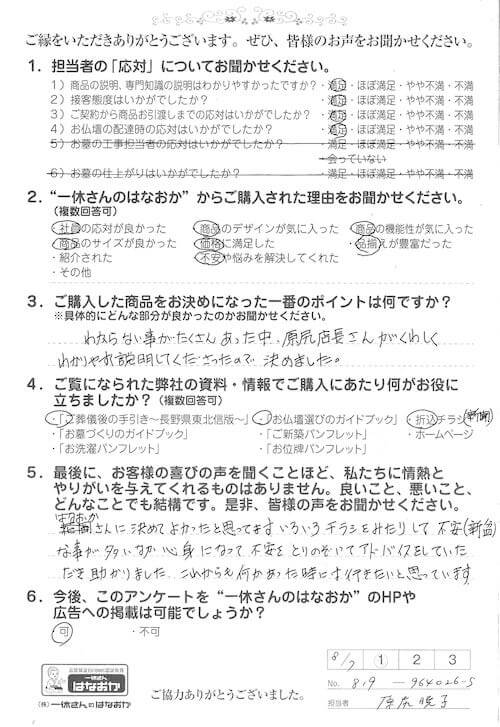 ご縁をいただきありがとうございます。ぜひ、皆様のお声をお聞かせください。
1．担当者の「応対」についてお聞かせください。
1）商品の説明、専門知識の説明はわかりやすかったですか？・満足・ほぼ満足・やや不満・不満
2）接客態度はいかがでしたか？・満足・ほぼ満足・やや不満・不満
3）ご契約から商品お引渡しまでの応対はいかがでしたか？・満足・ほぼ満足・やや不満・不満
4）お仏壇の配達時の応対はいかがでしたか？・満足・ほぼ満足・やや不満・不満
5）お墓の工事担当者の応対はいかがでしたか？・満足・ほぼ満足・やや不満・不満
・会っていない
6）お墓の仕上がりはいかがでしたか？・満足・ほぼ満足・やや不満・不満
2．“一休さんのはなおか”からご購入された理由をお聞かせください。
（複数回答可）
・社員の応対が良かった ・商品のデザインが気に入った ・商品の機能性が気に入った
・商品のサイズが良かった ・価格に満足した ・品揃えが豊富だった
・紹介された ・不安や悩みを解決してくれた
・その他
3．ご購入した商品をお決めになった一番のポイントは何ですか？
※具体的にどんな部分が良かったのかお聞かせください。
わからない事がたくさんあった中、原尻店長さんがくわしく
わかりやすく説明してくださったので決めました。
4．ご覧になられた弊社の資料・情報でご購入にあたり何がお役に
立ちましたか？（複数回答可）
・「ご葬儀後の手引き～長野県東北信版～」 ・「お仏壇選びのガイドブック」 ・折込チラシ（新聞）
・「お墓づくりのガイドブック」 ・「ご新築パンフレット」 ・ホームページ
・「お洗濯パンフレット」 ・「お位牌パンフレット」
5．最後に、お客様の喜びの声を聞くことほど、私たちに情熱と
やりがいを与えてくれるものはありません。良いこと、悪いこと、
どんなことでも結構です。是非、皆様の声をお聞かせください。
はなおか
さんに決めてよかったと思ってます いろいろチラシをみたりして不安（新盆）
な事が多いなか 心身になって不安をとりのぞいてアドバイスをしていた
だき助かりました。これからも何かあった時にす行きたいと思っています
6．今後、このアンケートを“一休さんのはなおか”のHPや
広告への掲載は可能でしょうか？
・可 ・不可
一休さんの
はなおか
（株）一休さんのはなおか
ご協力ありがとうございました。
8/7 1 2 3
No. 819-964026-S
担当者